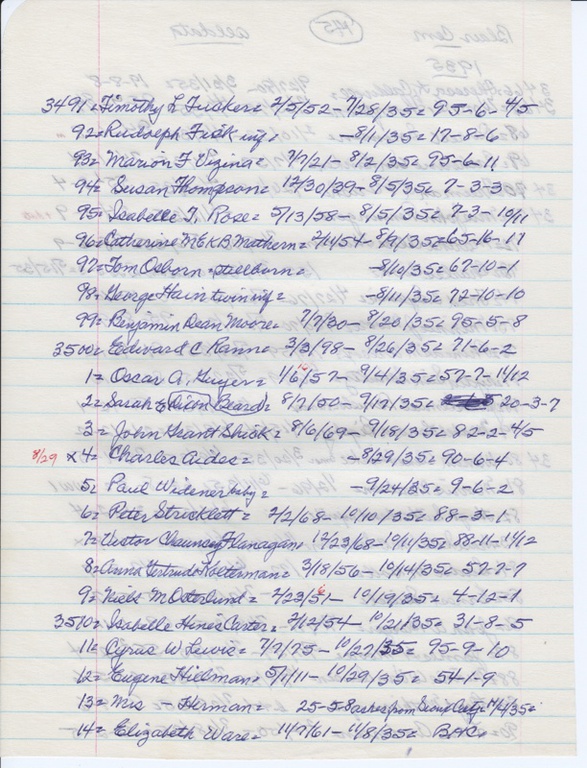 3491 = Timothy L Tucker = 2/5/52 - 7/28/35 = 95-6-4/5
92 = Rudolph Fick inf = - 8/1/35 = 17-8-6
93 = Marion F Vizina = 7/7/21 - 8/2/35 = 95-6-11
94 = Susan Thompson = 12/30/39 - 8/5/35 = 7-3-3
95 = Isabelle T, Rose = 5/13/58 - 8/5/35 = 7-3-10/11
96 = Catherine McK B Mathern = 2/11/54 - 8/9/35 = 65-16-17
97 = Tom Osborn - stillborn = - 8/10/35 = 67-10-1
98 = George Hain twin inf = - 8/11/35 = 72-10-10
99 = Benjamin Dean Moore = 7/7/30 - 8/20/35 = 95-5-8
3500 = Edward C Rann = 3/3/98 - 8/26/35 = 71-6-2
1 = Oscar A, Guyer = 1/6/57 - 9/4/35 = 57-7-11/12
2 = Sarah E Beard = 8/7/50 - 9/17/35 = 20-3-7
3 = John Grant Shick = 8/6/69 - 9/18/35 = 82-2-4/5
8/29 x 4 = Charles Aides = - 8/29/35 = 90-6-4
5 = Paul Widener baby = - 9/24/35 = 9-6-2
6 = Peter Stricklett = 2/2/68 - 10/10/35 = 88-3-1
7 = Victor Chauncey Flanagan = 12/23/68 - 10/11/35 = 88-11-11/12
8 = Anna Gertrude Koterman = 3/18/56 - 10/14/35 = 57-7-7
9 = Niels M Osterlund = 2/23/51 - 10/19/35 = 4-12-1
3510 = Isabelle Hines Carter = 2/12/54 - 10/21/35 = 31-8-5
11 = Cyrus W Lewis = 7/7/75 - 10/27/35 = 95-9-10
12 = Eugene Hillman = 5/1/11 - 10/29/35 = 54-1-9
13 = Mrs - Herman = 25-5-8 ashes from Sioux City
14 = Elizabeth Ware = 11/7/61 - 11/8/35 = BAC